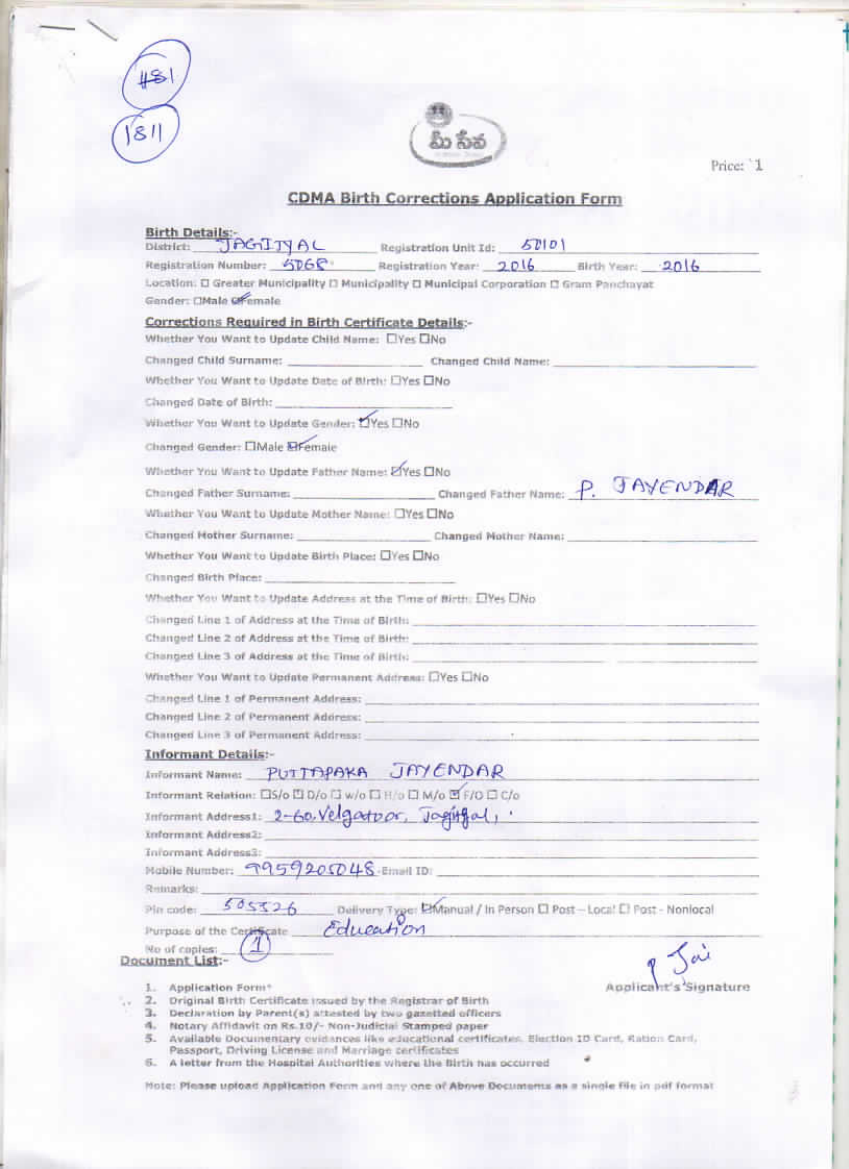 481
1811
మీ సేవ
Price: ` 1
CDMA Birth Corrections Application Form
Birth Details:-
District: JAGITYAL Registration Unit Id: 50101
Registration Number: 5068 Registration Year: 2016 Birth Year: 2016
Location: ☐ Greater Municipality ☐ Municipality ☐ Municipal Corporation ☐ Gram Panchayat
Gender: ☐Male ☑Female
Corrections Required in Birth Certificate Details:-
Whether You Want to Update Child Name: ☐Yes ☐No
Changed Child Surname: Changed Child Name:
Whether You Want to Update Date of Birth: ☐Yes ☐No
Changed Date of Birth:
Whether You Want to Update Gender: ☑Yes ☐No
Changed Gender: ☐Male ☑Female
Whether You Want to Update Father Name: ☑Yes ☐No
Changed Father Surname: Changed Father Name: P. JAYENDAR
Whether You Want to Update Mother Name: ☐Yes ☐No
Changed Mother Surname: Changed Mother Name:
Whether You Want to Update Birth Place: ☐Yes ☐No
Changed Birth Place:
Whether You Want to Update Address at the Time of Birth: ☐Yes ☐No
Changed Line 1 of Address at the Time of Birth:
Changed Line 2 of Address at the Time of Birth:
Changed Line 3 of Address at the Time of Birth:
Whether You Want to Update Permanent Address: ☐Yes ☐No
Changed Line 1 of Permanent Address:
Changed Line 2 of Permanent Address:
Changed Line 3 of Permanent Address:
Informant Details:-
Informant Name: PUTTAPAKA JAYENDAR
Informant Relation: ☐S/o ☐ D/o ☐ w/o ☐ H/o ☐ M/o ☑ F/O ☐ C/o
Informant Address1: 2-60, Velgatoor, Jagityal,
Informant Address2:
Informant Address3:
Mobile Number: 9959205048 Email ID:
Remarks:
Pin code: 505526 Delivery Type: ☑Manual / In Person ☐ Post – Local ☐ Post - Nonlocal
Purpose of the Certificate Education
No of copies: 1
Document List:-
Jai
Applicant's Signature
1. Application Form*
2. Original Birth Certificate issued by the Registrar of Birth
3. Declaration by Parent(s) attested by two gazetted officers
4. Notary Affidavit on Rs.10/- Non-Judicial Stamped paper
5. Available Documentary evidances like educational certificates, Election ID Card, Ration Card,
Passport, Driving License and Marriage certificates
6. A letter from the Hospital Authorities where the Birth has occurred
Note: Please upload Application Form and any one of Above Documents as a single file in pdf format